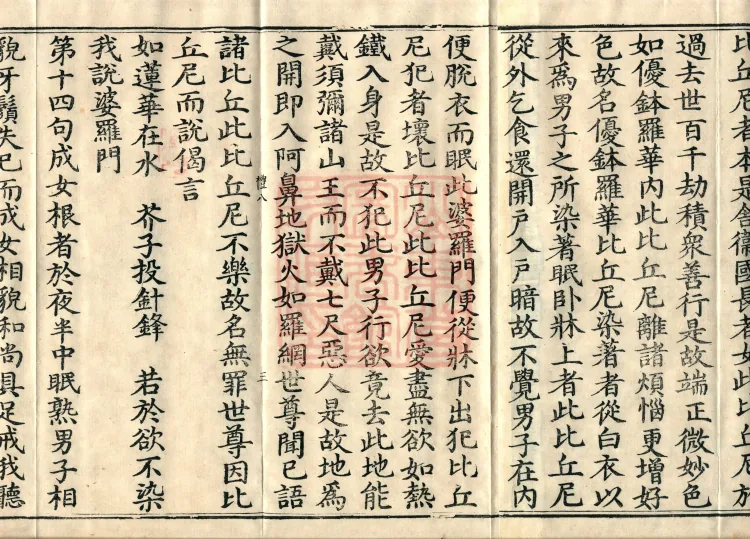 比丘尼者本是舍衛國長者女此比丘尼於
過去世百千劫積衆善行是故端正微妙色
如優鉢羅華内此比丘尼離諸煩惱更增好
色故名優鉢羅華比丘尼染著者從白衣以
來爲男子之所染著眠卧牀上者此比丘尼
從外乞食還開户入户暗故不覺男子在内
便脫衣而眠此婆羅門便從牀下出犯比丘
尼犯者壞比丘尼此比丘尼愛盡無欲如熱
鐵入身是故不犯此男子行欲竟去此地能
戴須彌諸山王而不戴七尺惡人是故地爲
之開即入阿鼻地獄火如羅網世尊聞已語
諸比丘此比丘尼不樂故名無罪世尊因比
丘尼而說偈言
如蓮華在水 芥子投針鋒 若於欲不染
我說婆羅門
第十四句成女根者於夜半中眠熟男子相
貌牙鬚失已而成女相貌和尚具足戒我聽